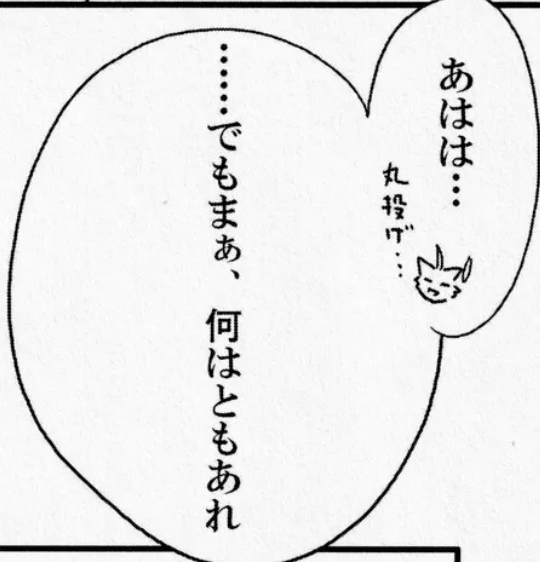 あはは…
丸投げ…
……でもまぁ、何はともあれ